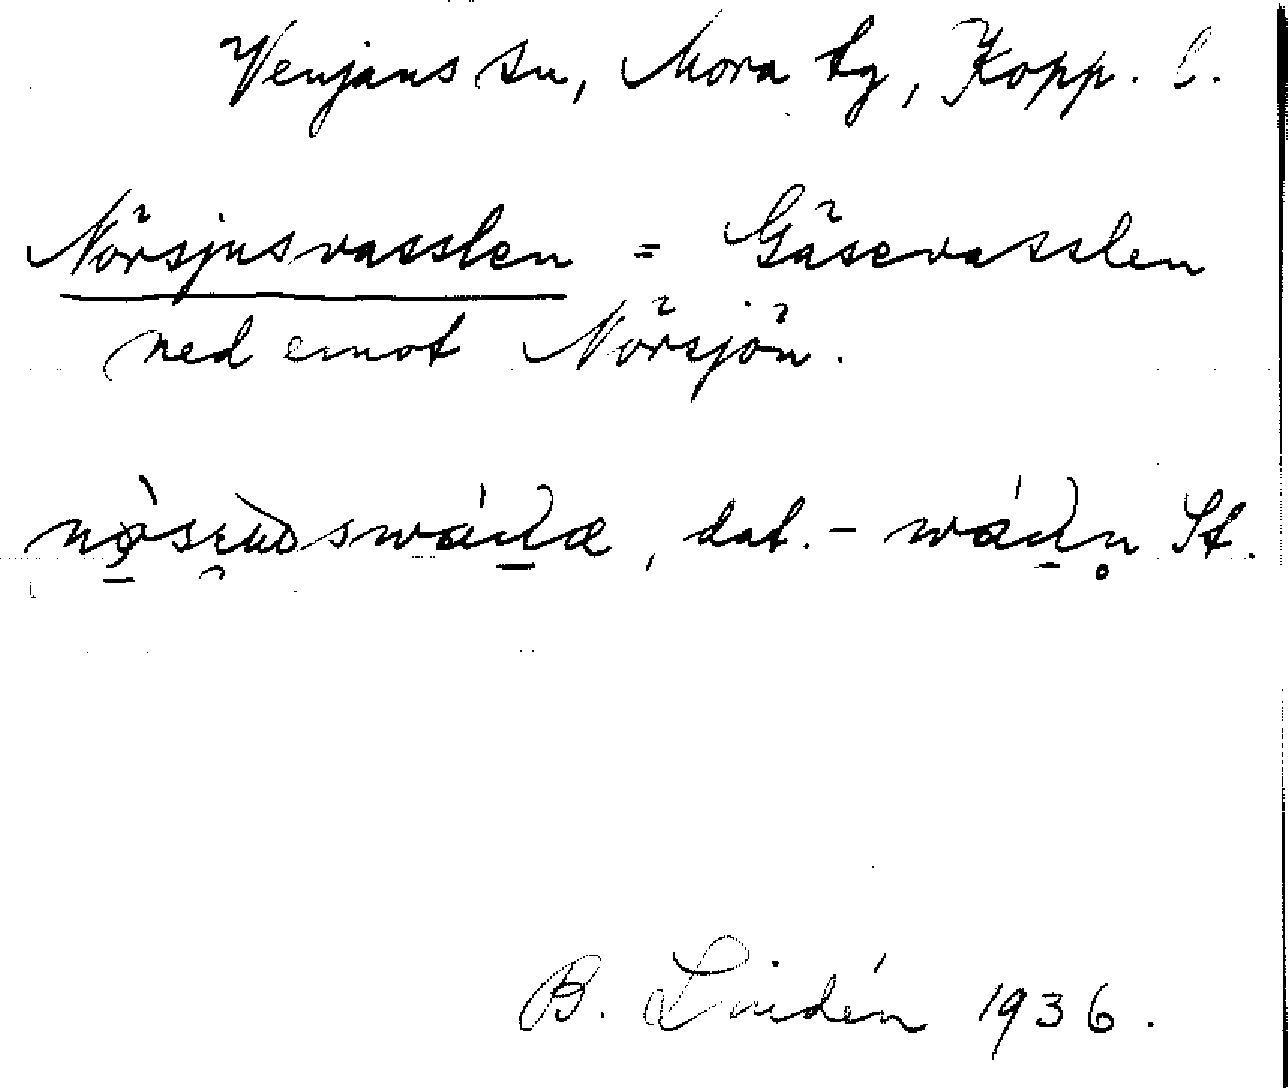 Venjans sn, Mora tg, Kopp. l.
Nörsjusvasslen = Gåsevasslen
ned emot Nörsjön.
dat. - St.
B. Lindén 1936.